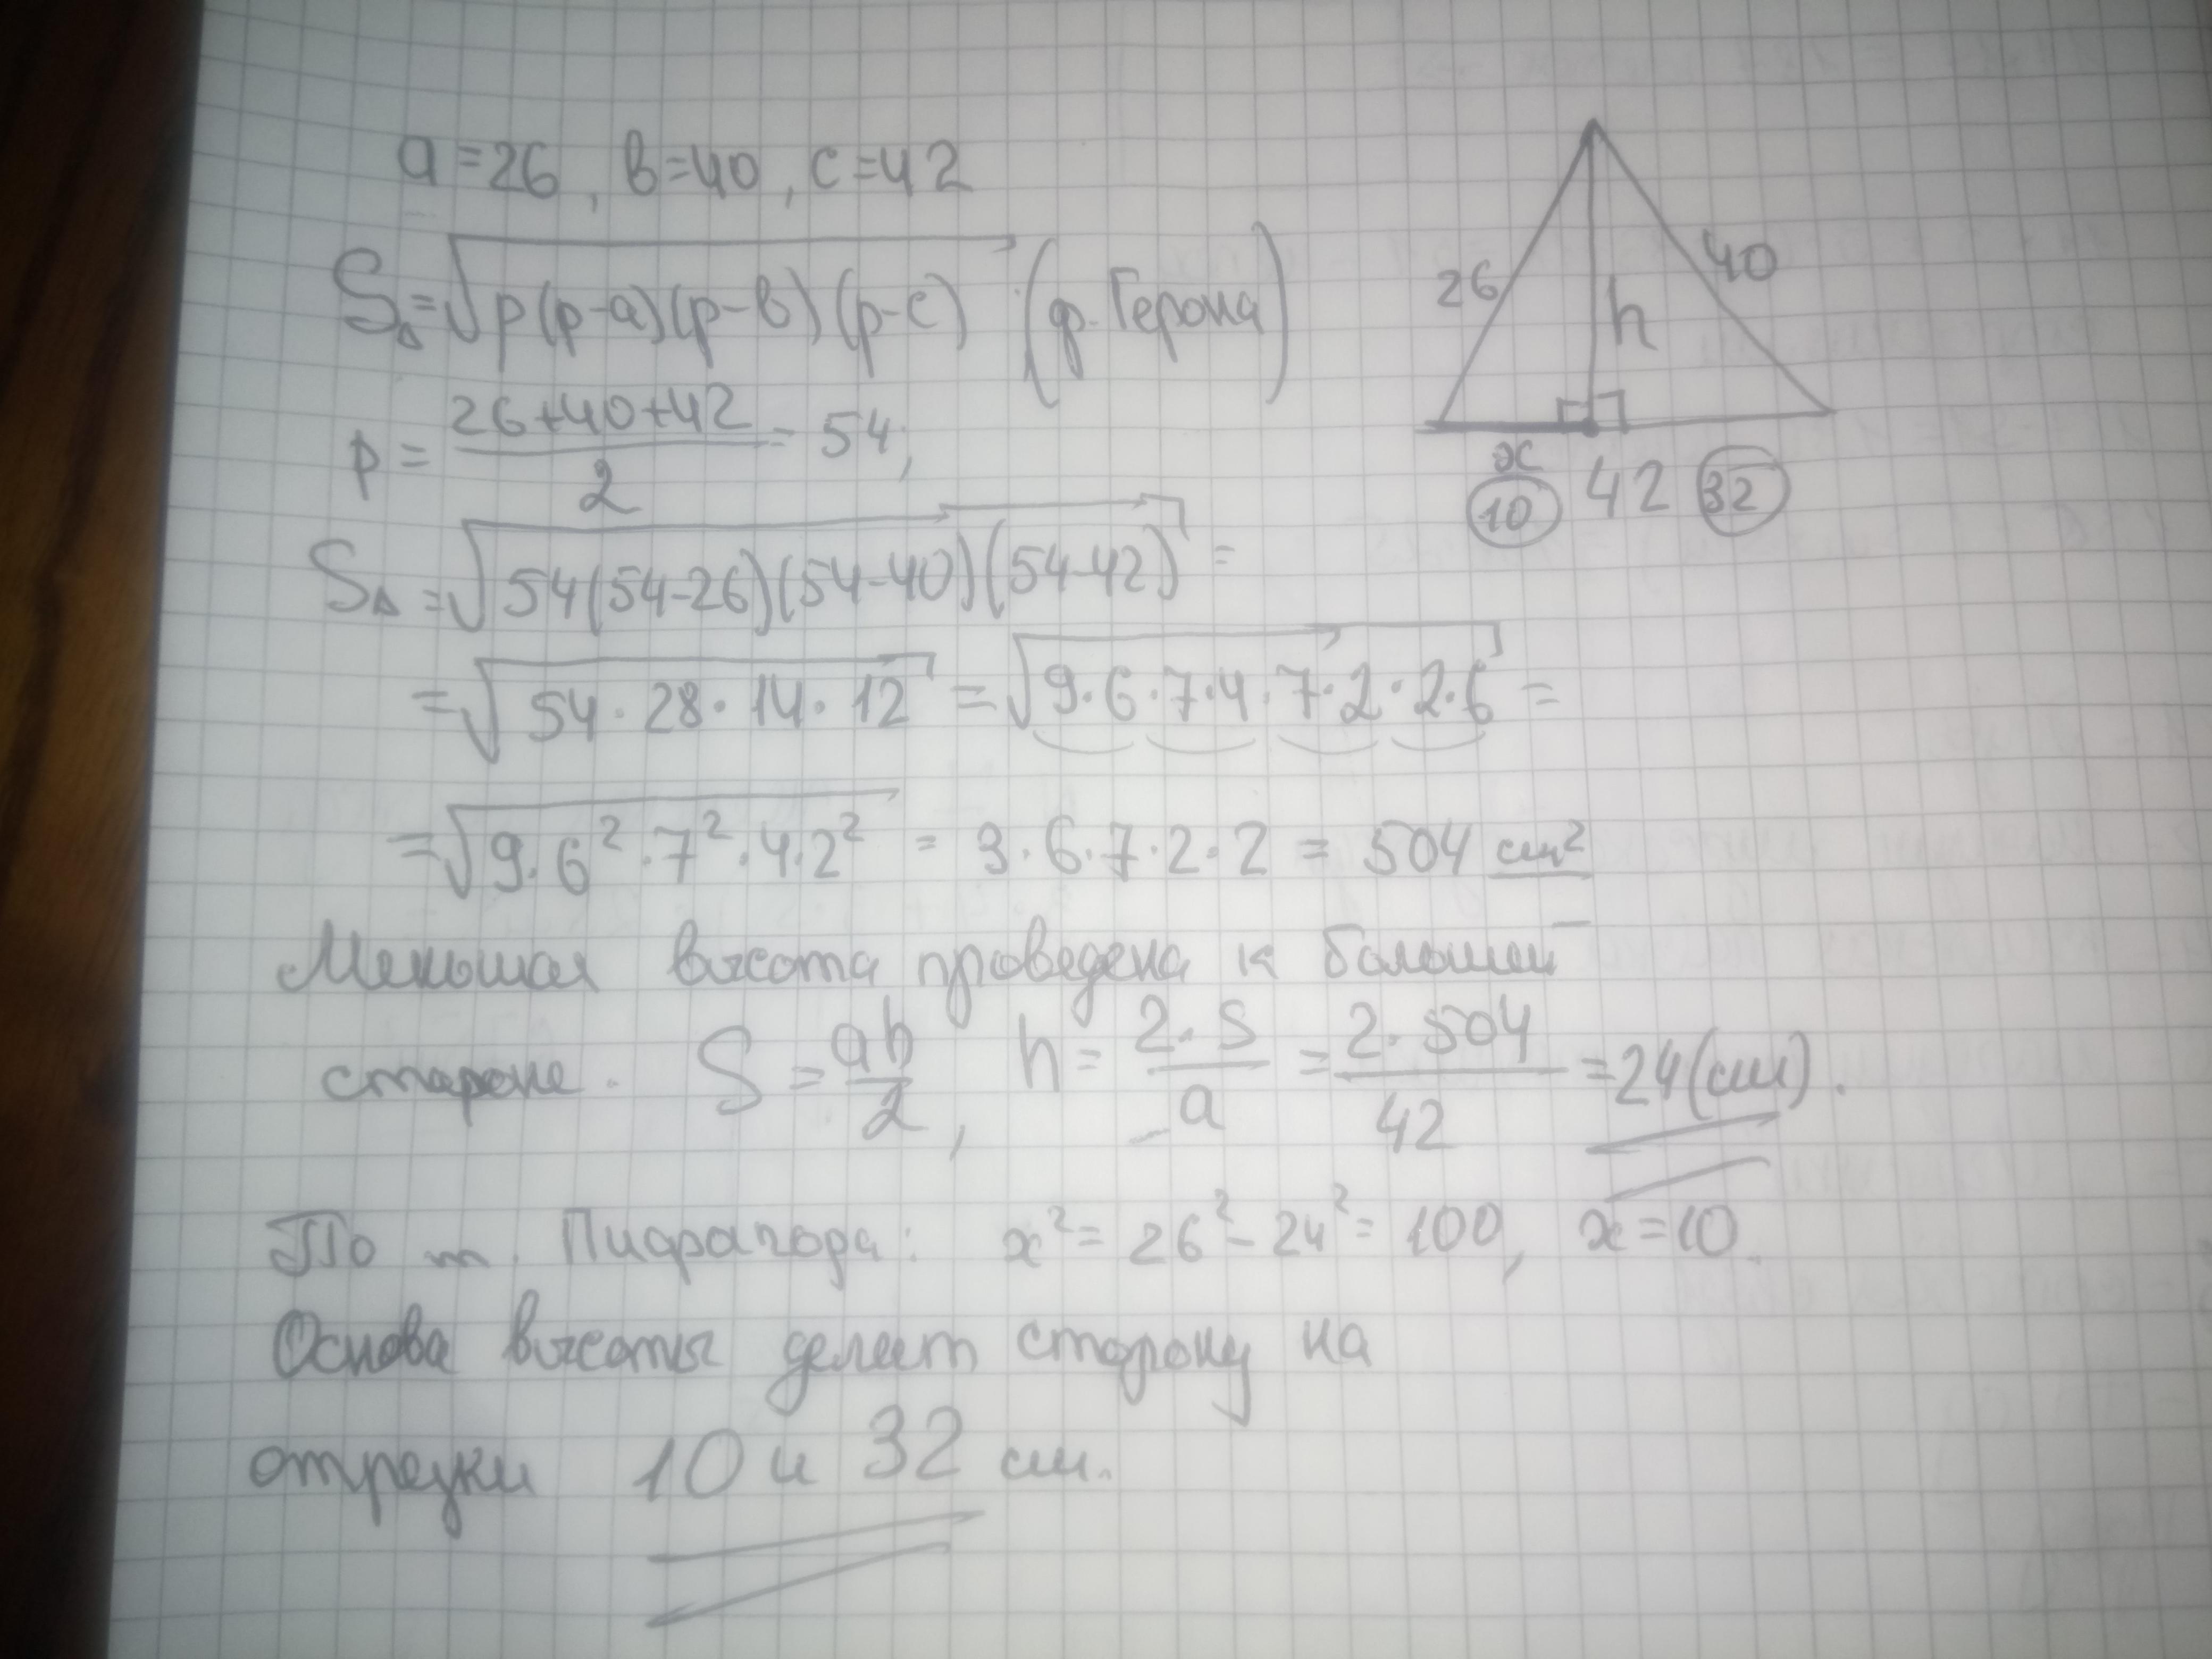 a=26, в=40, с=42
S△=√p(p-a)(p-в)(p-c) (ф. Герона)
p = (26+40+42)/2 = 54,
S△=√54(54-26)(54-40)(54-42) =
=√54·28·14·12 = √9·6·7·4·7·2·2·6 =
=√9·6²·7²·4·2² = 3·6·7·2·2 = 504 см²
Меньшая высота проведена к большей
стороне. S = ah/2, h = 2·S/a = 2·504/42 = 24(см).
По т. Пифагора: x² = 26² - 24² = 100, x = 10.
Основа высоты делит сторону на
отрезки 10 и 32 см.
26
40
h
x
42
10
32